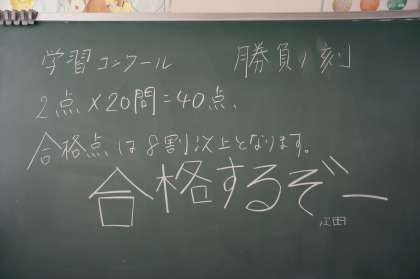 学習コンクール 勝負ノ刻
2点×20問=40点、
合格点は8割以上となります。
合格するぞー